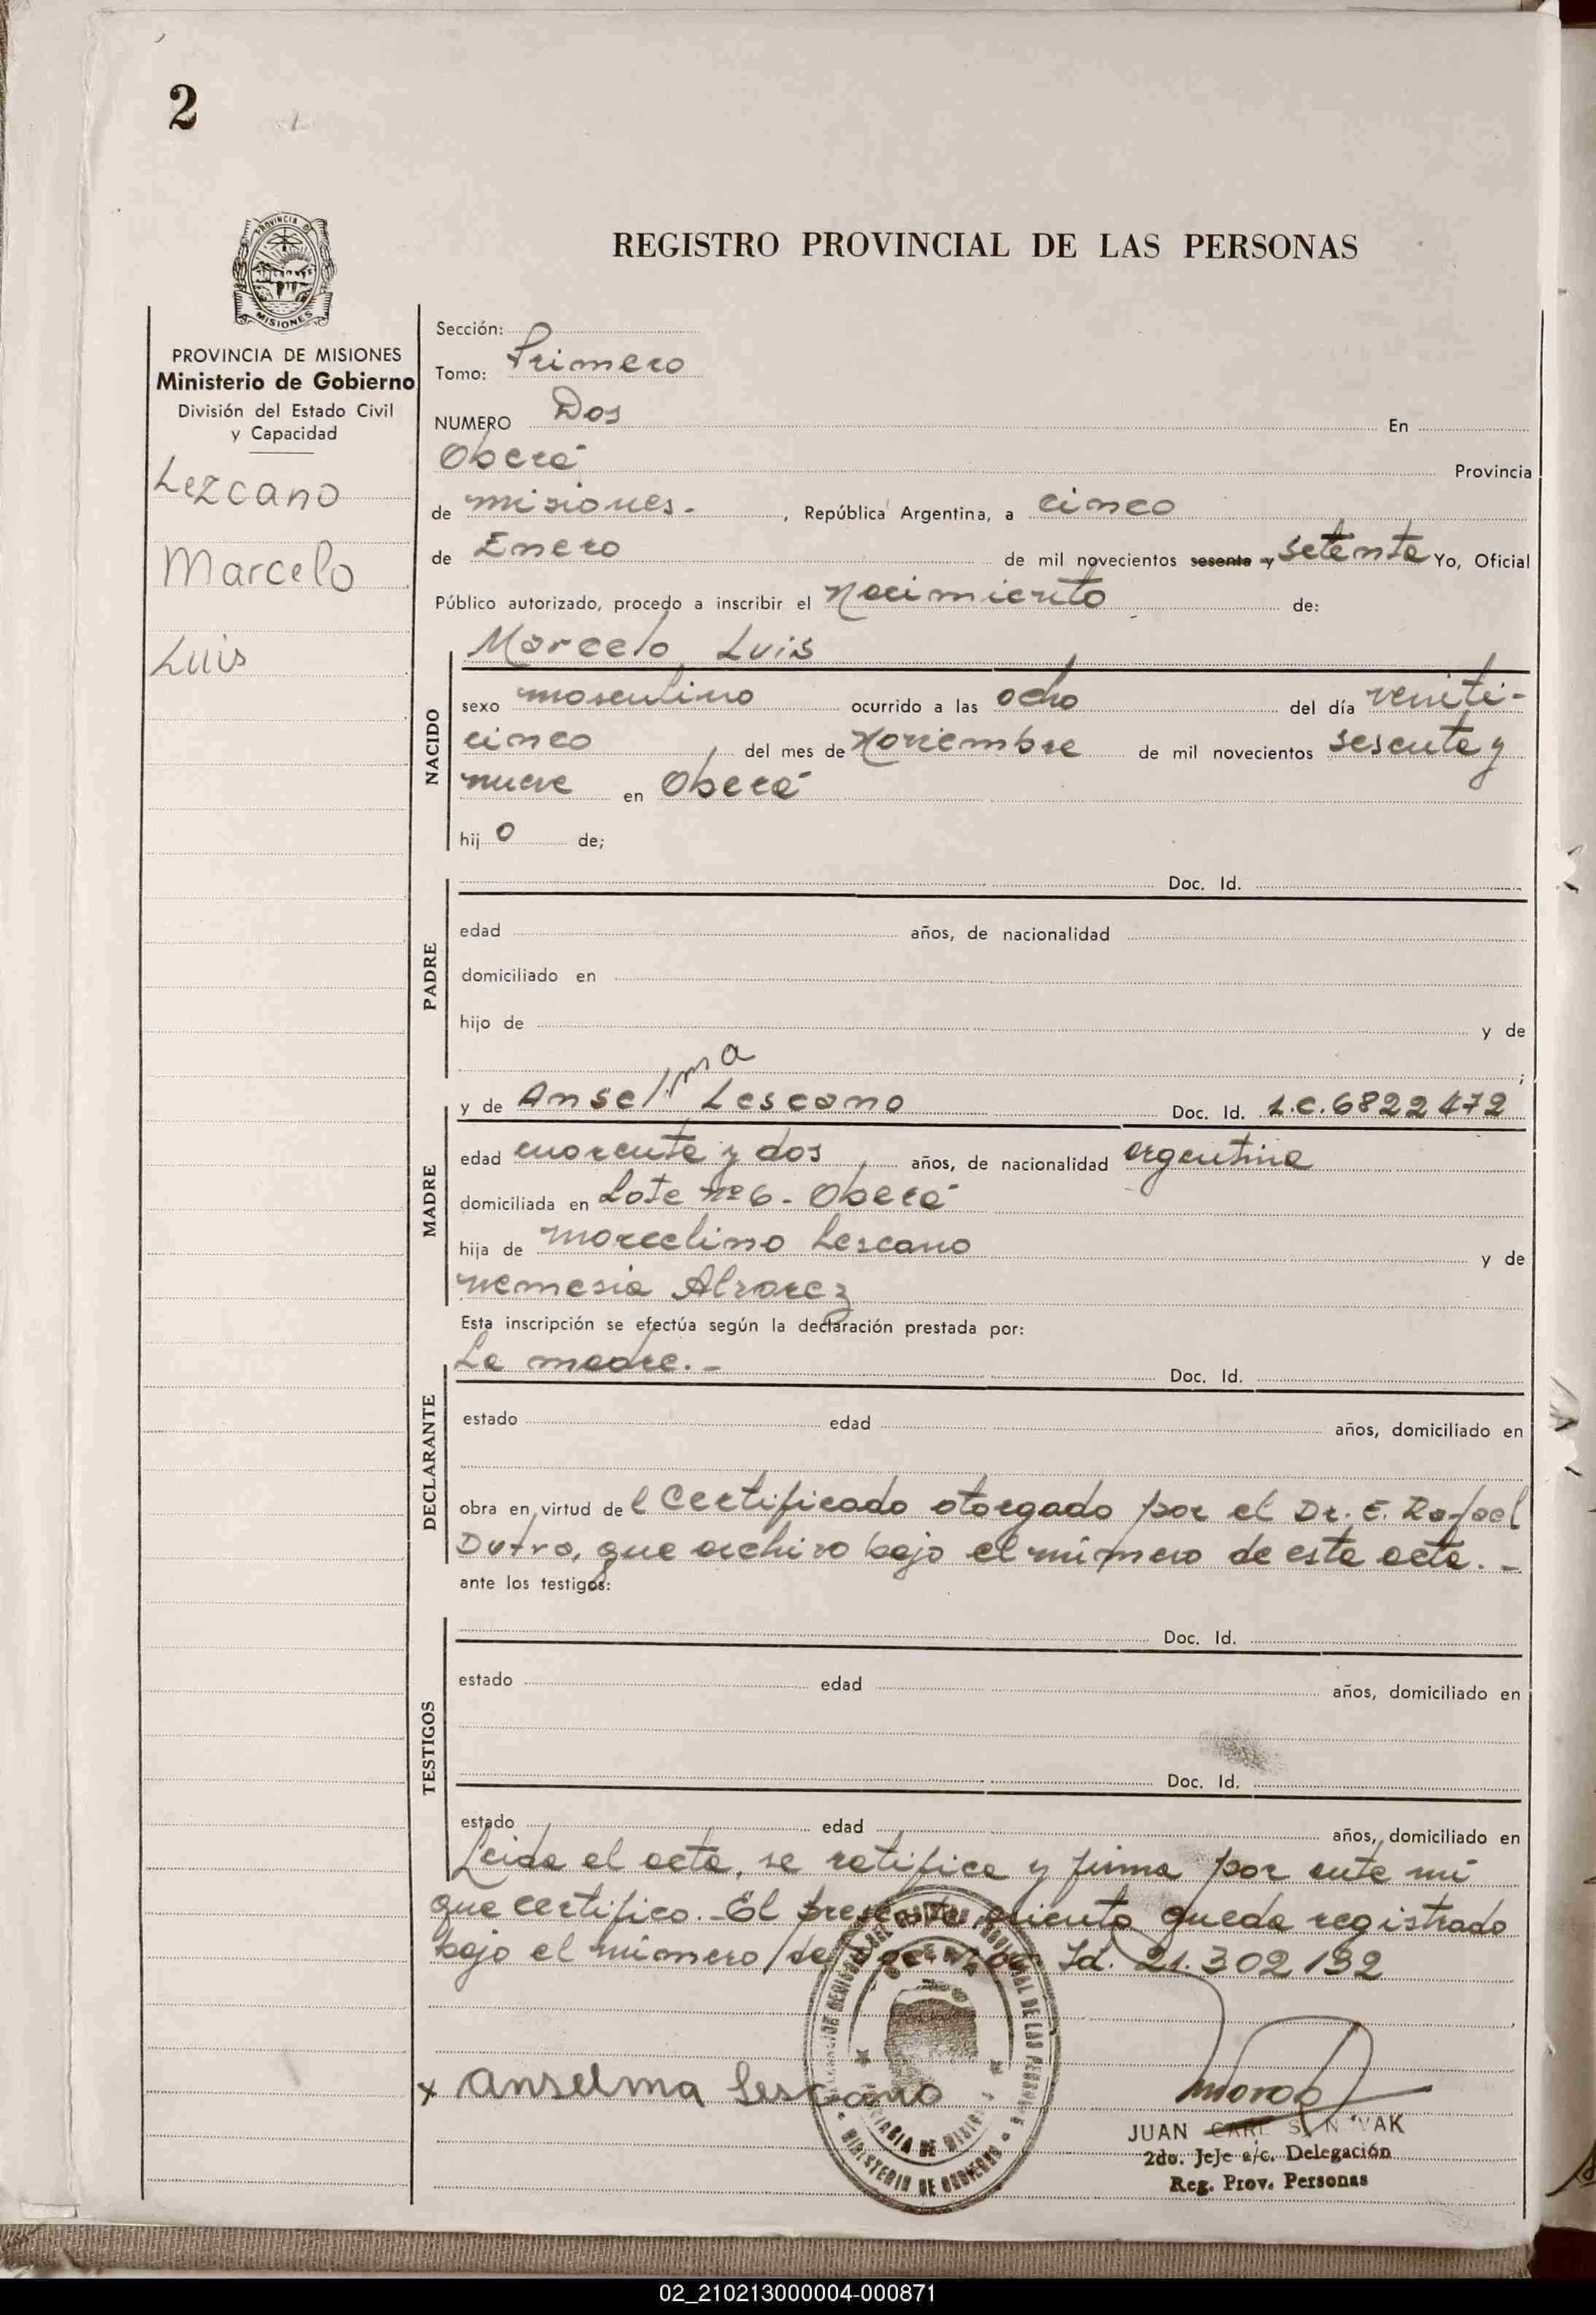 2
PROVINCIA DE
MISIONES
PROVINCIA DE MISIONES
Ministerio de Gobierno
División del Estado Civil
y Capacidad
Lezcano
Marcelo
Luis
REGISTRO PROVINCIAL DE LAS PERSONAS
Sección:
Tomo: Primero
NUMERO Dos En
Oberá Provincia
de misiones.- , República Argentina, a cinco
de Enero de mil novecientos sesenta y setenta Yo, Oficial
Público autorizado, procedo a inscribir el Nacimiento de:
Marcelo Luis
NACIDO
sexo masculino ocurrido a las ocho del día veniti-
cinco, del mes de Noviembre de mil novecientos sesenta y
nueve en Oberá
hijo de;
Doc. Id.
PADRE
edad años, de nacionalidad
domiciliado en
hijo de y de
;
y de Anselma Lescano Doc. Id. L.C. 6822472
MADRE
edad cuarenta y dos, años, de nacionalidad argentina
domiciliada en Lote nº 6 - Oberá
hija de Marcelino Lescano y de
Nemesia Alvarez
Esta inscripción se efectúa según la declaración prestada por:
La madre.- Doc. Id.
DECLARANTE
estado edad años, domiciliado en
obra en virtud del Certificado otorgado por el Dr. E. Rafael
Dutra, que archivo bajo el número de esta acta.-
ante los testigos:
Doc. Id.
TESTIGOS
estado edad años, domiciliado en
Doc. Id.
estado edad años, domiciliado en
Leida el acta, se ratifica y firma por ante mi
que certifico.- El presente queda registrado
bajo el número de Id. 21.302132
x Anselma Lescano
PROVINCIAL DE LAS PERSONAS
MINISTERIO DE GOBIERNO
JUAN CARLOS NOVAK
2do. Jefe a/c. Delegación
Reg. Prov. Personas
02_210213000004-000871